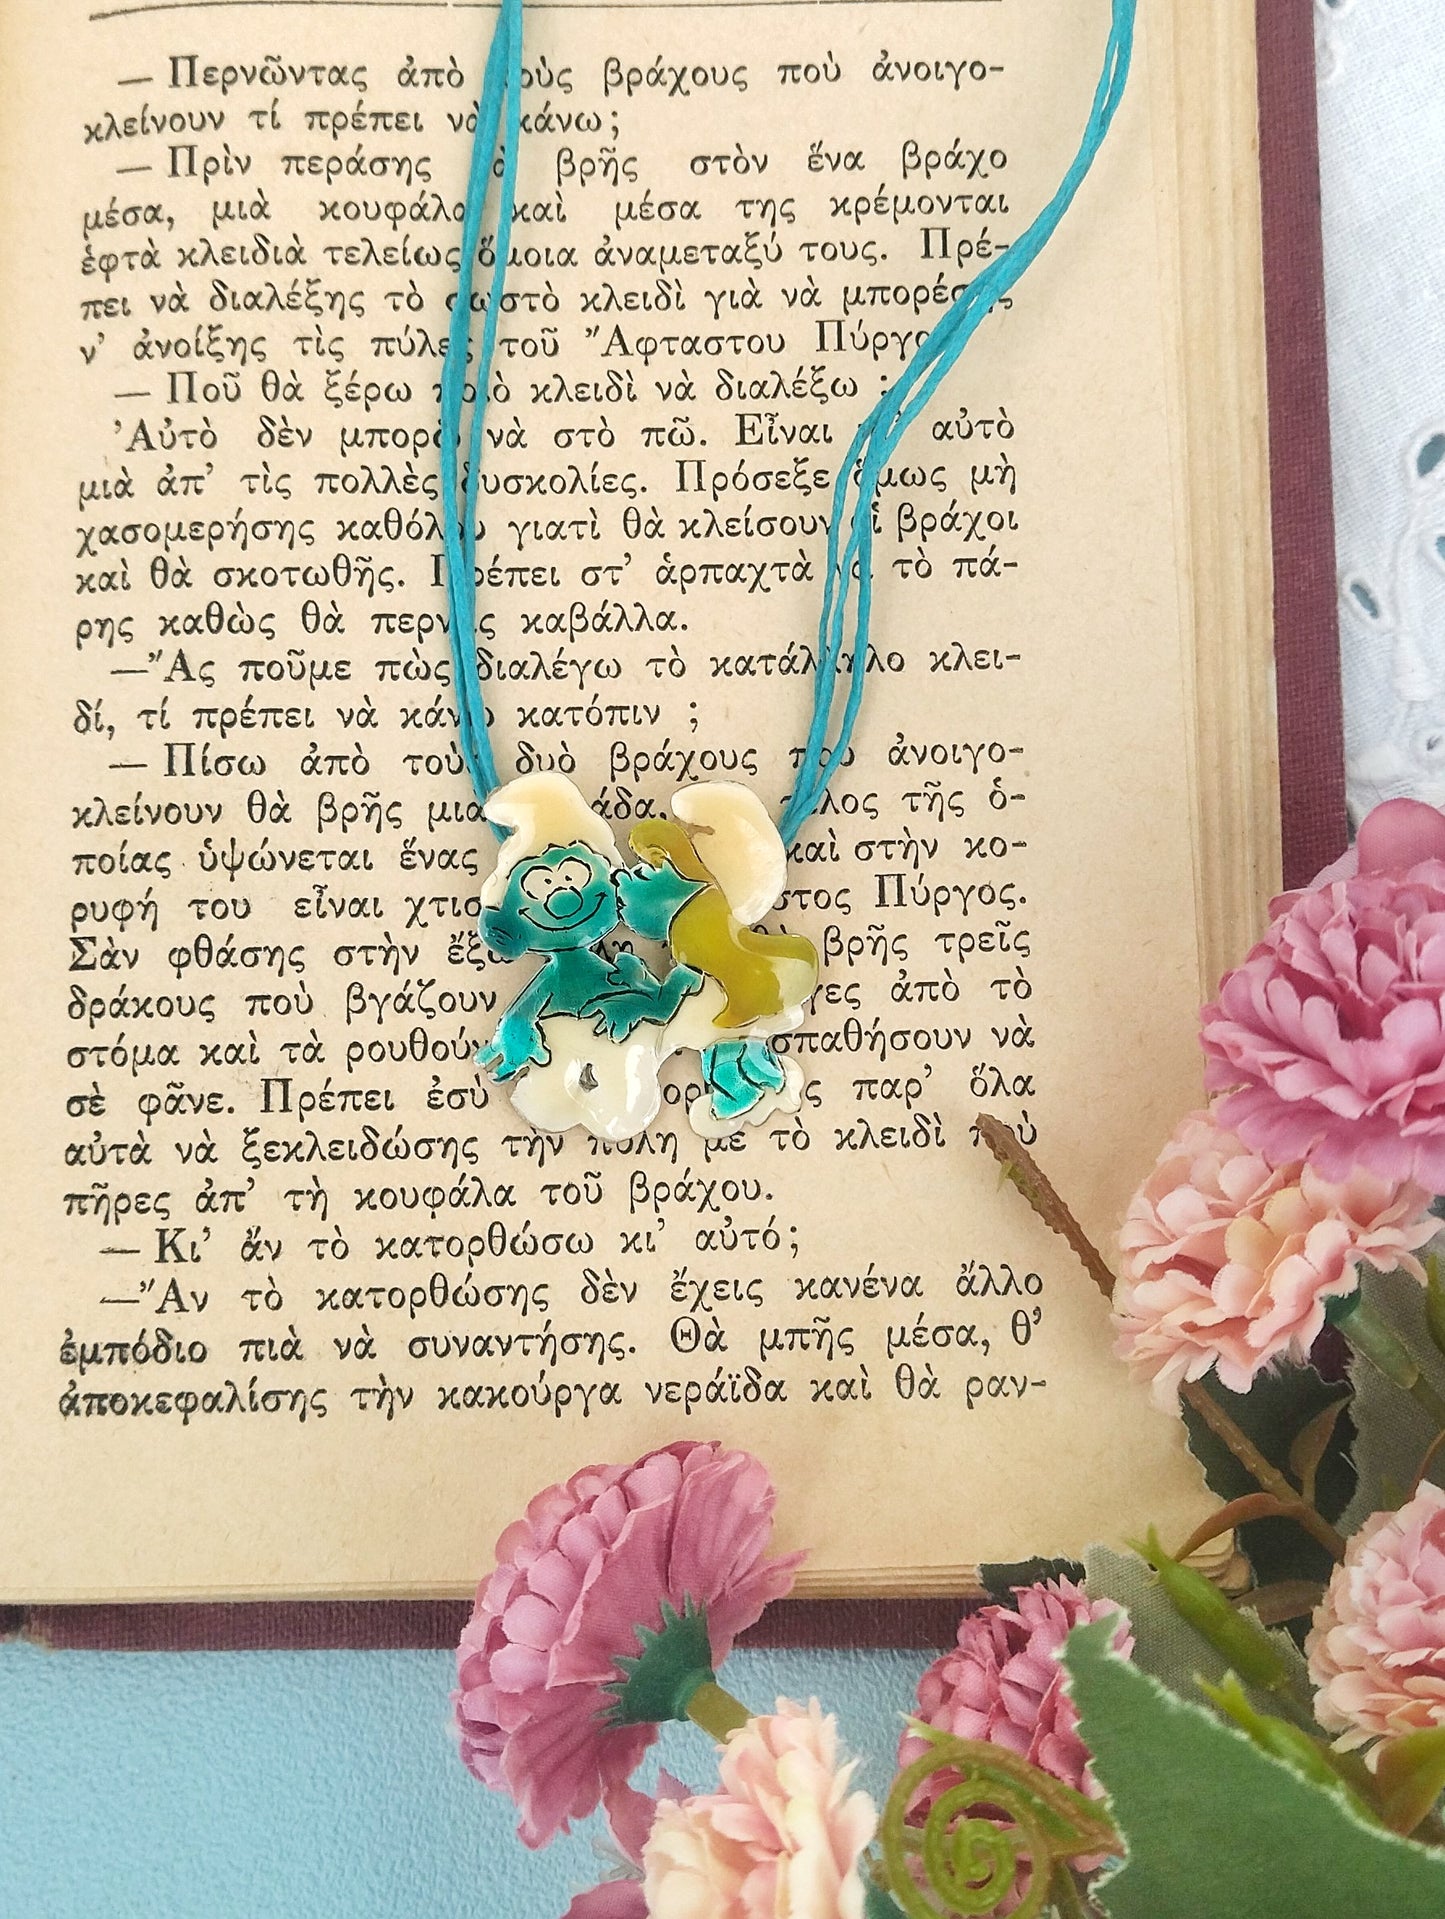 — Περνῶντας ἀπὸ τοὺς βράχους ποὺ ἀνοιγο-
κλείνουν τί πρέπει νὰ κάνω;
— Πρὶν περάσης βρῆς στὸν ἕνα βράχο
μέσα, μιὰ κουφάλα καὶ μέσα της κρέμονται
ἑφτὰ κλειδιὰ τελείως ὅμοια ἀναμεταξύ τους. Πρέ-
πει νὰ διαλέξης τὸ σωστὸ κλειδὶ γιὰ νὰ μπορέσης
ν' ἀνοίξης τὶς πύλες τοῦ Ἄφταστου Πύργου
— Ποῦ θὰ ξέρω ποιὸ κλειδὶ νὰ διαλέξω ;
Ἀὐτὸ δὲν μπορῶ νὰ στὸ πῶ. Εἶναι αὐτὸ
μιὰ ἀπ' τὶς πολλὲς δυσκολίες. Πρόσεξε ὅμως μὴ
χασομερήσης καθόλου γιατὶ θὰ κλείσουν οἱ βράχοι
καὶ θὰ σκοτωθῆς. Πρέπει στ' ἁρπαχτὰ νὰ τὸ πά-
ρης καθὼς θὰ περνᾶς καβάλλα.
—Ἄς ποῦμε πὼς διαλέγω τὸ κατάλληλο κλει-
δί, τί πρέπει νὰ κάνω κατόπιν ;
— Πίσω ἀπὸ τοὺς δυὸ βράχους ποὺ ἀνοιγο-
κλείνουν θὰ βρῆς μιὰ τέλος τῆς ὁ-
ποίας ὑψώνεται ἕνας καὶ στὴν κο-
ρυφή του εἶναι χτισ στος Πύργος.
Σὰν φθάσης στὴν ἔξω θὰ βρῆς τρεῖς
δράκους ποὺ βγάζουν ἀπὸ τὸ
στόμα καὶ τὰ ρουθούν σπαθήσουν νὰ
σὲ φᾶνε. Πρέπει ἐσὺ παρ' ὅλα
αὐτὰ νὰ ξεκλειδώσης τὴν πύλη με τὸ κλειδὶ ποὺ
πῆρες ἀπ' τὴ κουφάλα τοῦ βράχου.
— Κι' ἄν τὸ κατορθώσω κι' αὐτό;
—Ἄν τὸ κατορθώσης δὲν ἔχεις κανένα ἄλλο
ἐμπόδιο πιὰ νὰ συναντήσης. Θὰ μπῆς μέσα, θ'
ἀποκεφαλίσης τὴν κακούργα νεράϊδα καὶ θὰ ραν-